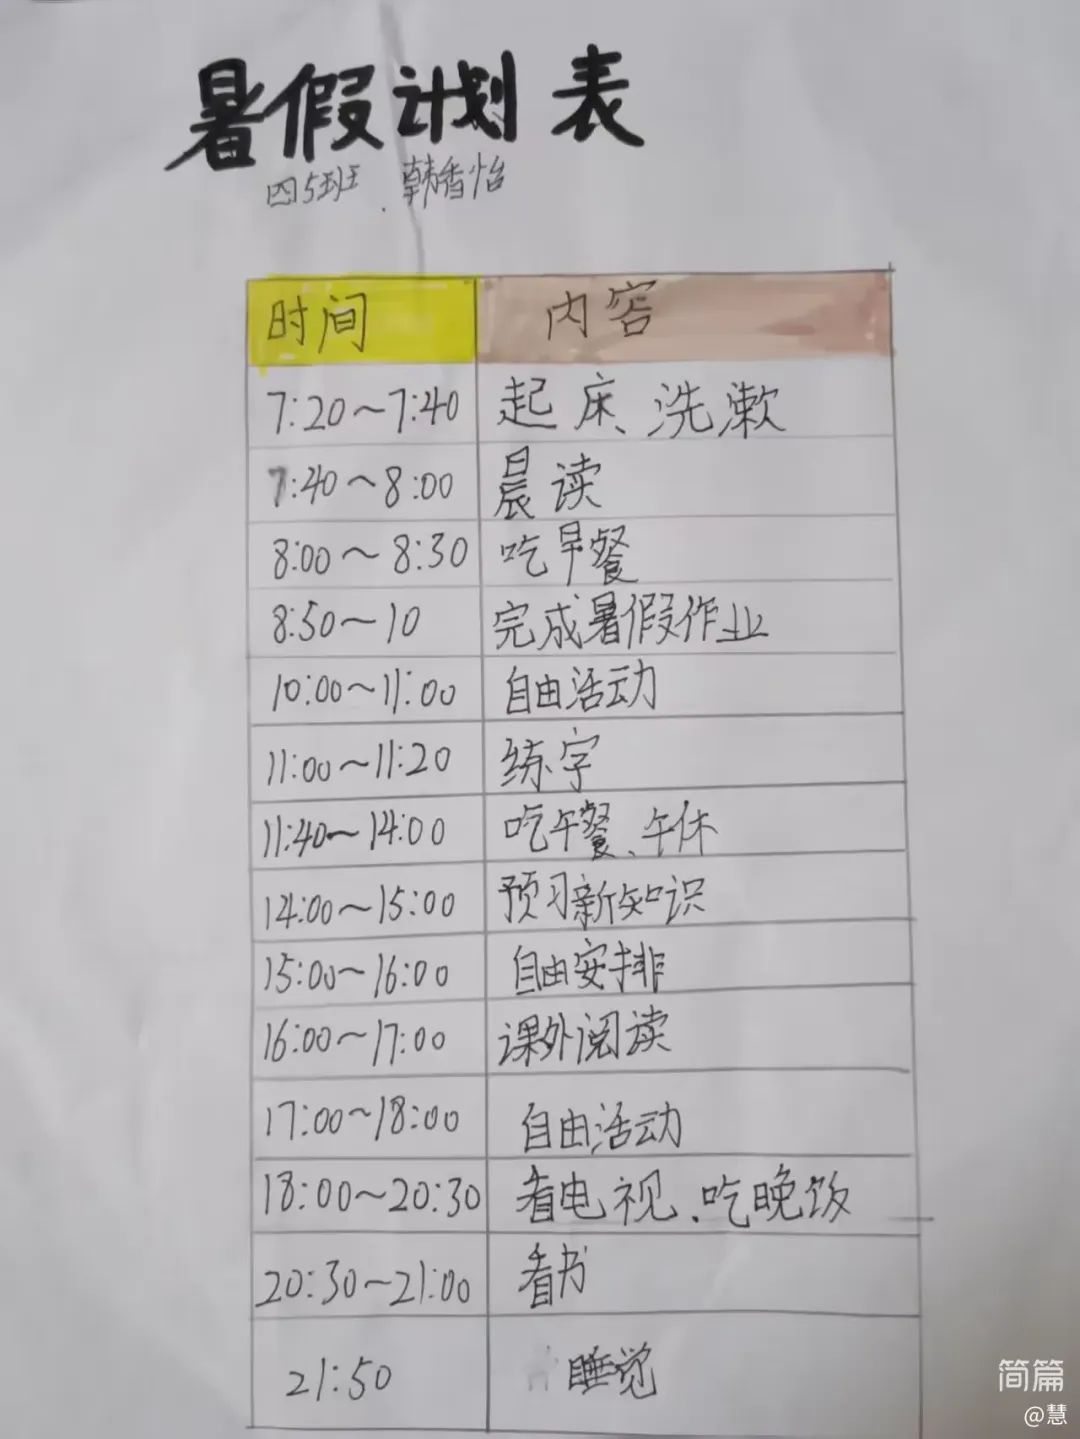 暑假计划表
四5班 . 韩香怡
时间 内容
7:20～7:40 起床、洗漱
7:40～8:00 晨读
8:00～8:30 吃早餐
8:50～10 完成暑假作业
10:00～11:00 自由活动
11:00～11:20 练字
11:40～14:00 吃午餐、午休
14:00～15:00 预习新知识
15:00～16:00 自由安排
16:00～17:00 课外阅读
17:00～18:00 自由活动
18:00～20:30 看电视、吃晚饭
20:30～21:00 看书
21:50 睡觉
简篇
@慧